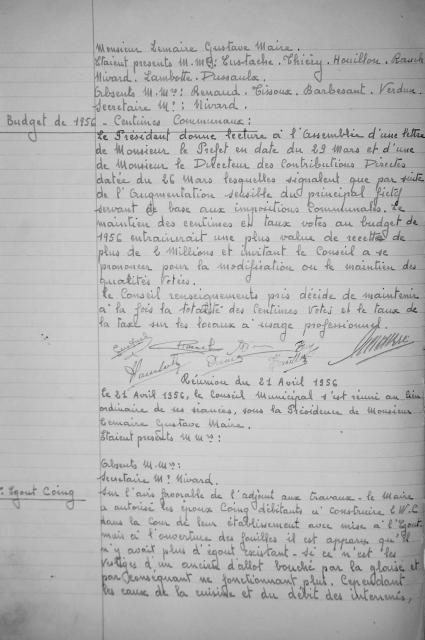 Monsieur Lemaire Gustave Maire.
Etaient presents M.M.rs: Eustache. Thiéry. Houillon. Rauch
Nivard. Lambotte. Dussaulx.
Absents M.M.rs: Renaud. Tissoux. Barbesant. Verdun.
Secretaire Mr: Nivard.
Budget de 1956 - Centimes Communaux:
Le Président donne lecture à l'Assemblée d'une lettre
de Monsieur le Prefet en date du 29 Mars et d'une
de Monsieur le Directeur des Contributions Directes
datée du 26 Mars lesquelles signalent que par suite
de l'augmentation sensible du principal fictif
servant de base aux impositions communales. Le
maintien des centimes en taux votés au budget de
1956 entrainerait une plus value de recettes de
plus de 2 Millions et invitant le Conseil a se
prononcer pour la modification ou le maintien des
quotités votées.
Le Conseil renseignements pris décide de maintenir
à la fois la totalité des Centimes Votés et le taux de
la taxe sur les locaux à usage professionnel.
Réunion du 21 Avril 1956
Le 21 Avril 1956, le Conseil Municipal s'est réuni au lieu
ordinaire de ses séances, sous la Présidence de Monsieur
Lemaire Gustave Maire.
Etaient presents M.M.rs:
Absents M.M.rs:
Secretaire Mr Nivard.
Egout Coing
Sur l'avis favorable de l'adjoint aux travaux - le Maire
a autorisé les époux Coing débitants a construire 2 W.C
dans la Cour de leur établissement avec mise à l'Egout
mais à l'ouverture des fouilles il est apparu qu'il
n'y avait plus d'égout existant - si ce n'est les
vestiges d'un ancien dallot bouché par la glaise et
par conséquant ne fonctionnant plus. Cependant
les eaux de la cuisine et du débit des interessés,